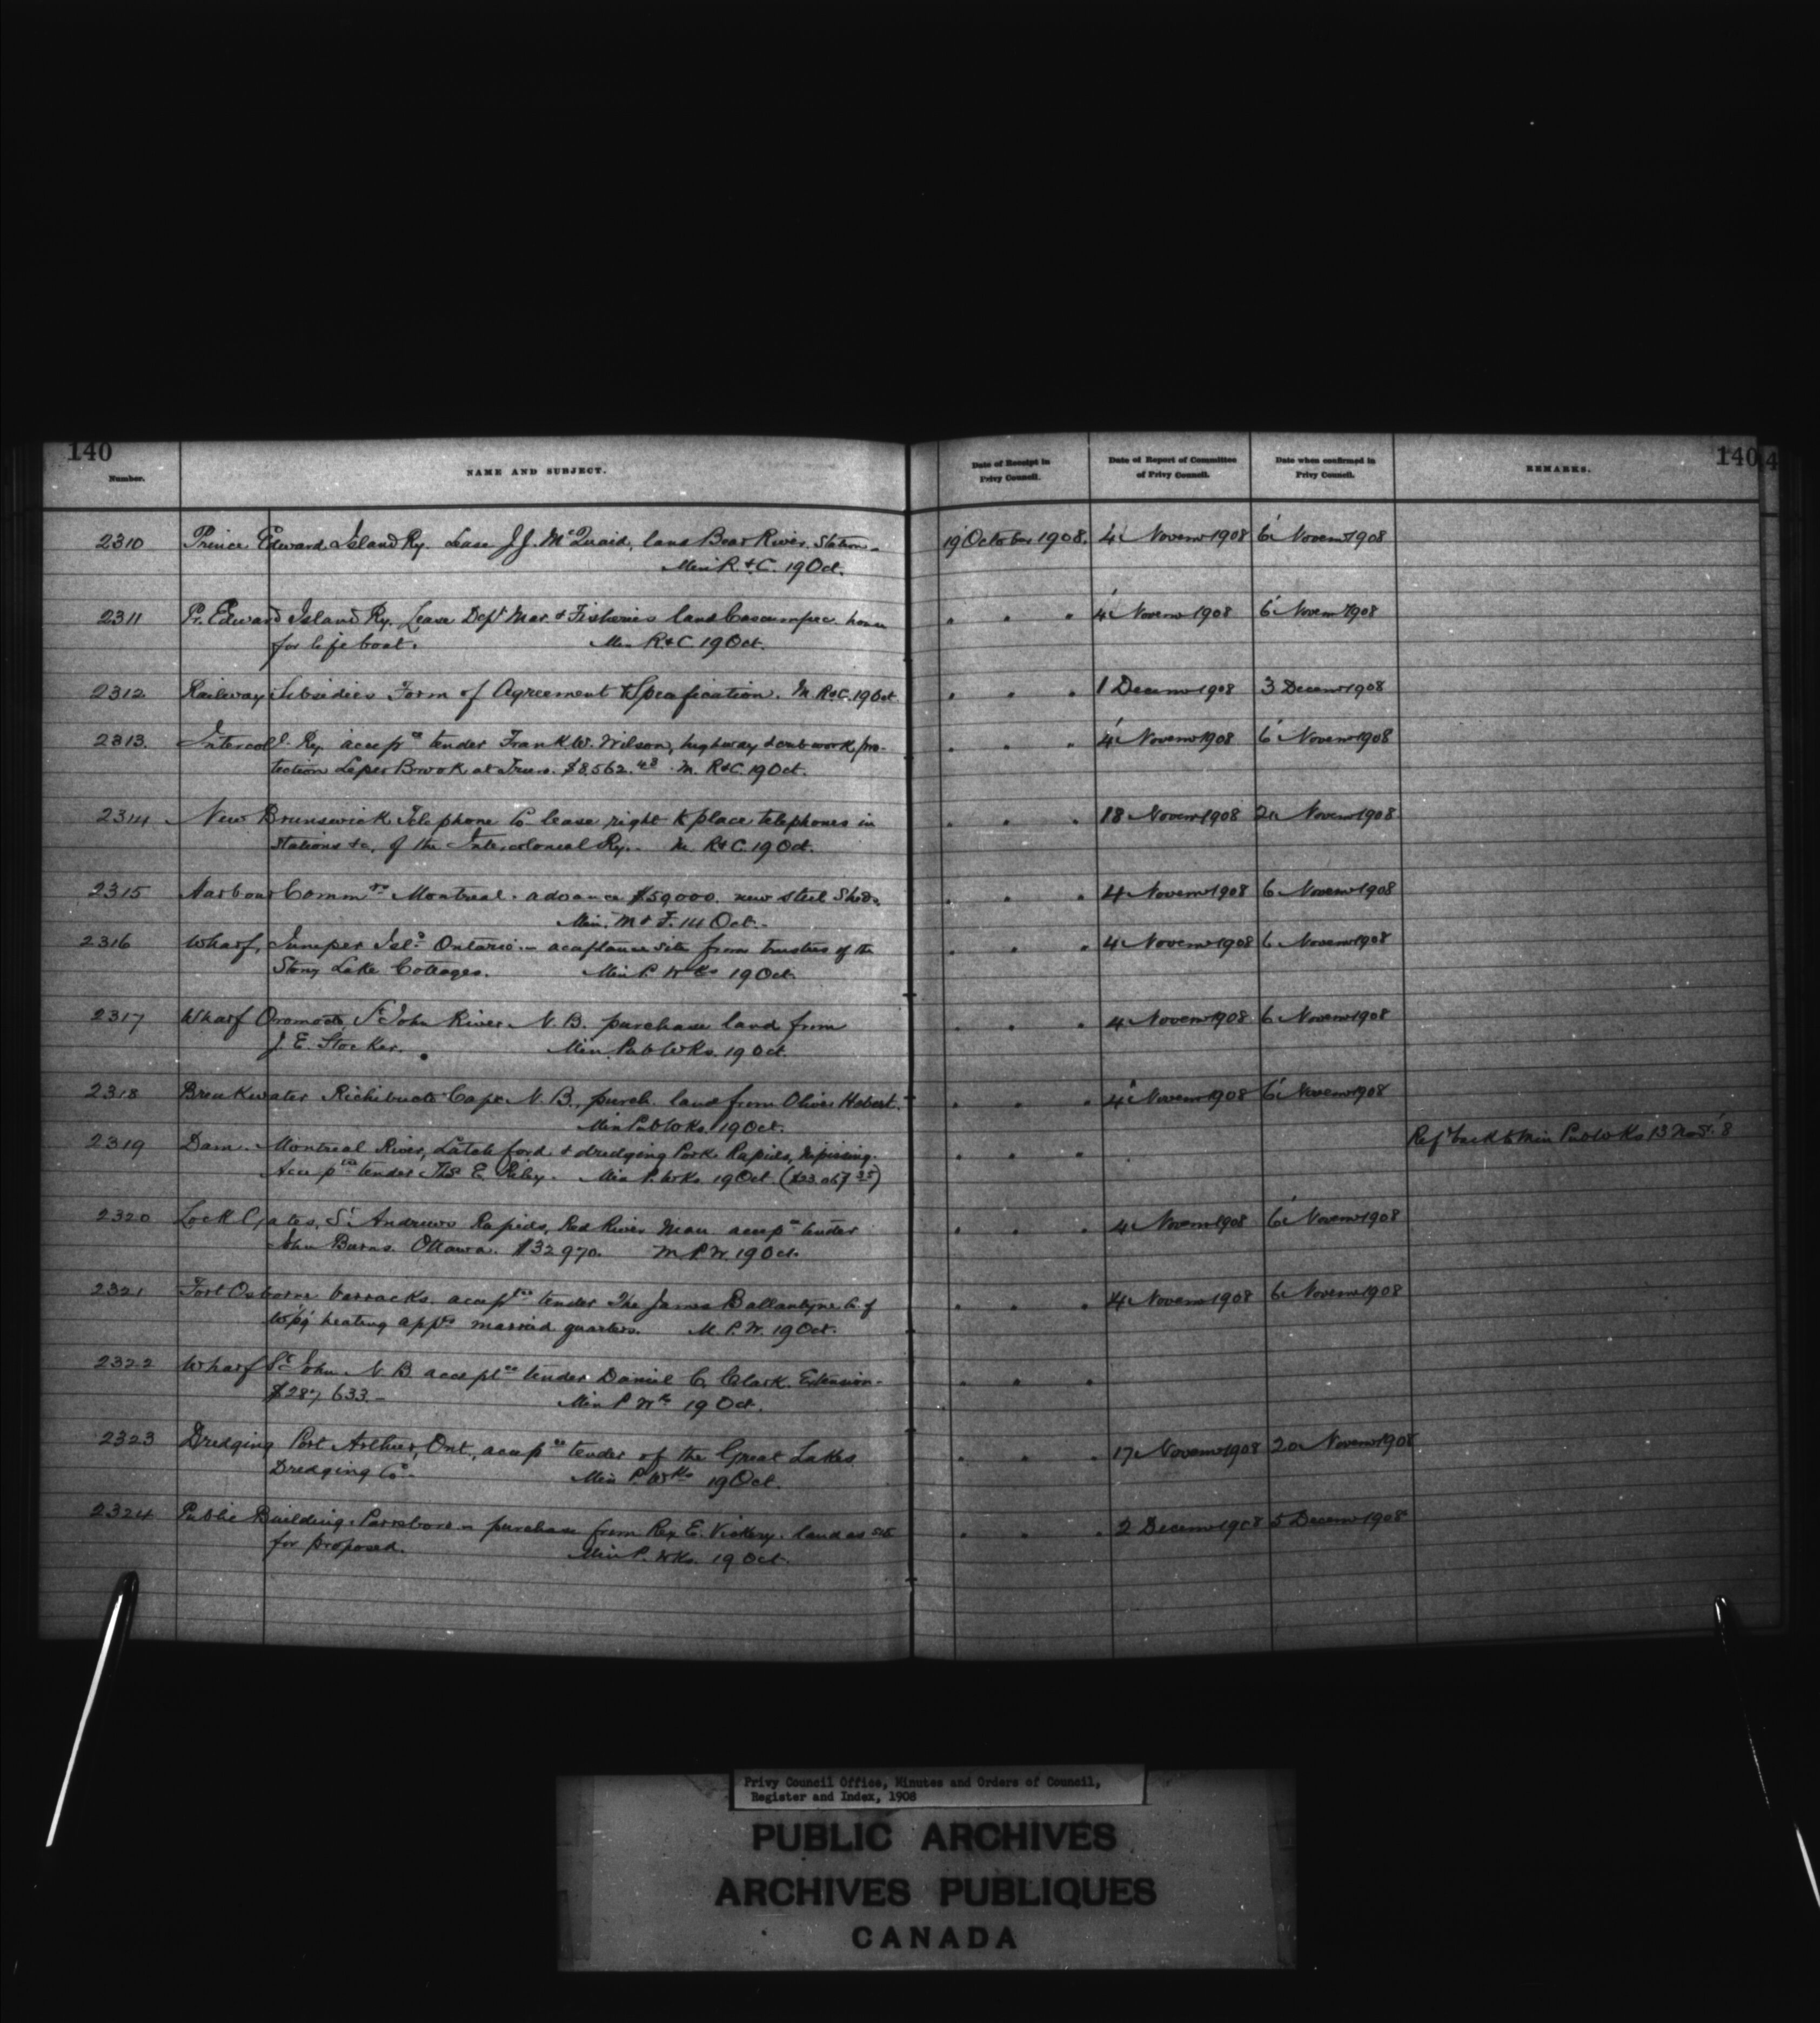 140
140
4
Number.
NAME AND SUBJECT.
Date of Receipt in Privy Council.
Date of Report of Committee of Privy Council.
Date when confirmed in Privy Council.
REMARKS.
2310 Prince Edward Island Ry. Lease J. J. McQuaid, land Bear River Station. 19 October 1908. 4 Novemr 1908 6 Novemr 1908
Min R. & C. 19 Oct.
2311 Pr. Edward Island Ry. Lease Dept Mar. & Fisheries land Cascumpec house " " " 4 Novemr 1908 6 Novemr 1908
for life boat. Min R & C. 19 Oct.
2312 Railway Subsidies Form of Agreement & Specification. M. R & C. 19 Oct. " " " 1 Decemr 1908 3 Decemr 1908
2313. Intercoll. Ry. accepce tender Frank W. Wilson, highway & cribwork pro- " " " 4 Novemr 1908 6 Novemr 1908
tection Leper Brook at Truro. $8,562.48 M. R & C. 19 Oct.
2314 New Brunswick Telephone Co lease right to place telephones in " " " 18 Novemr 1908 20 Novemr 1908
Stations &c. of the Intercolonial Ry. M. R & C. 19 Oct.
2315 Harbour Commrs Montreal. advance $59000. new steel Sheds. " " " 4 Novemr 1908 6 Novemr 1908
Min. M & F. 14 Oct.
2316 Wharf, Juniper Isld Ontario - acceptance site from trustees of the " " " 4 Novemr 1908 6 Novemr 1908
Stony Lake Cottages. Min P. Wks 19 Oct.
2317 Wharf Oromocto, St John River N. B. purchase land from " " " 4 Novemr 1908 6 Novemr 1908
J. E. Stocker. Min. Pub Wks. 19 Oct.
2318 Breakwater Richibucto Cape N. B., purch. land from Oliver Hebert. " " " 4 Novemr 1908 6 Novemr 1908
Min Pub Wks. 19 Oct.
2319 Dam. Montreal River, Latchford & dredging Pork Rapids, Nipissing. " " " Refd back to Min Pub Wks 13 Nov. 8
Accepce tender Thos E. Riley. Min P. Wks. 19 Oct.
2320 Lock Gates, St Andrews Rapids, Red River Man accepce tender " " " 4 Novemr 1908 6 Novemr 1908
John Burns. Ottawa. $32970. M. P. W. 19 Oct.
2321 Fort Osborne barracks. accepce tender The James Ballantyne Co. of " " " 4 Novemr 1908 6 Novemr 1908
Wpg heating appts married quarters. M. P. W. 19 Oct.
2322 Wharf St John N. B acceptce tender Daniel C. Clark. Extension. " " "
$287 633.- Min P Wks 19 Oct.
2323 Dredging Port Arthur, Ont, accepce tender of the Great Lakes " " " 17 Novemr 1908 20 Novemr 1908
Dredging Co. Min P. Wks 19 Oct.
2324 Public Building. Parrsboro - purchase from Rex E. Vickery. land as site " " " 2 Decemr 1908 5 Decemr 1908
for proposed. Min P. Wks. 19 Oct.
Privy Council Office, Minutes and Orders of Council,
Register and Index, 1908
PUBLIC ARCHIVES
ARCHIVES PUBLIQUES
CANADA